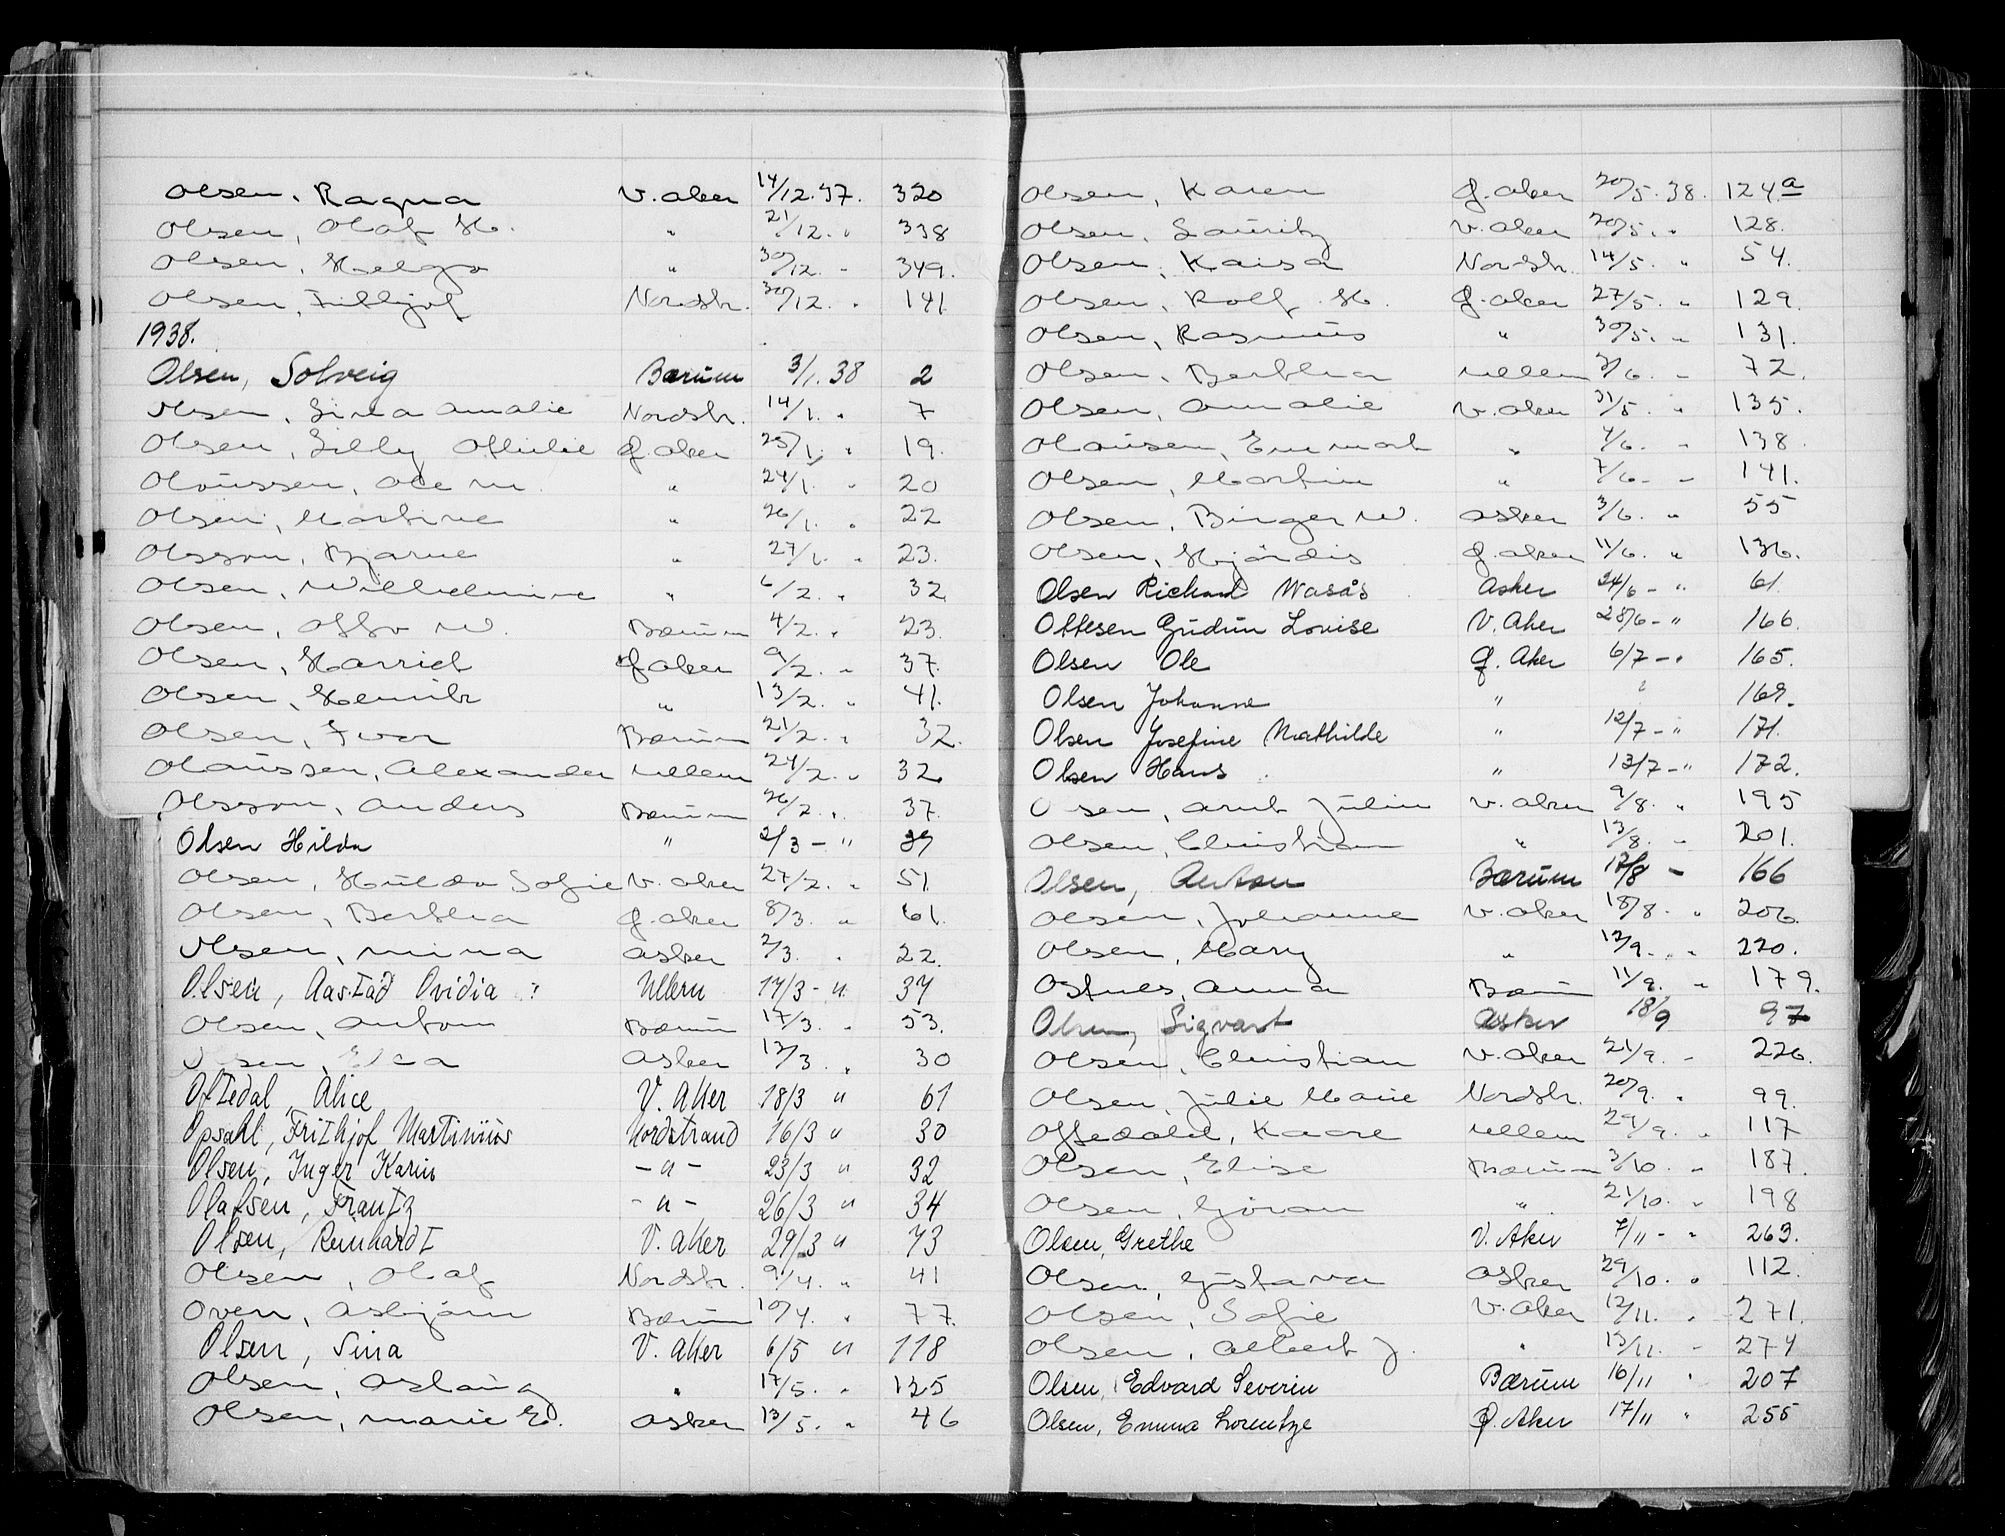 Olsen, Ragna V. Aker 14/12. 37. 320
Olsen, Olaf H. " 21/12. " 338
Olsen, Helga " 30/12. " 349.
Olsen, Fithjof Nordstr. 30/12. " 141
1938.
Olsen, Solveig Bærum 3/1. 38 2
Olsen, Lina Amalie Nordstr. 14/1. " 7
Olsen, Lilly Othilie Ø. Aker 25/1. " 19.
Olaussen, Ole M. " 24/1. " 20
Olsen, Martine " 26/1. " 22
Olsson, Bjarne " 27/1. " 23.
Olsen, Wilhelmine " 6/2. " 32
Olsen, Otto W. Bærum 4/2. " 23.
Olsen, Harriet Ø. Aker 9/2. " 37.
Olsen, Henrik " 13/2. " 41.
Olsen, Ivar Bærum 21/2. " 32.
Olaussen, Alexander Ullern 24/2. " 32.
Olsson, Anders Bærum 26/2. " 37.
Olsen Hilda " 2/3 - " 39
Olsen, Hulda Sofie V. Aker 27/2. " 51
Olsen, Berthea Ø. Aker 8/3. " 61.
Olsen, Mina Asker 2/3. " 22.
Olsen, Aastad Ovidia Ullern 14/3 - " 37
Olsen, Anton Bærum 17/3. " 53.
Olsen, Elna Asker 12/3. " 30
Oftedal, Alice V. Aker 18/3 " 61
Opsahl, Frithjof Martinius Nordstrand 16/3 " 30
Olsen, Inger Karin - " - 23/3 " 32
Olafsen, Frantz - " - 26/3 " 34
Olsen, Reinhardt V. Aker 29/3 " 73
Olsen, Olaf Nordstr. 9/4. " 41
Oven, Asbjørn Bærum 10/4. " 77.
Olsen, Sina V. Aker 6/5 " 118
Olsen, Aslaug " 17/5. " 125
Olsen, Marie E. Asker 13/5. " 46
Olsen, Karen Ø. Aker 20/5. 38. 124a
Olsen, Lauritz V. Aker 20/5. " 128.
Olsen, Kaisa Nordstr. 14/5. " 54.
Olsen, Rolf H. Ø. Aker 27/5. " 129.
Olsen, Rasmus " 30/5. " 131.
Olsen, Berthea Ullern 3/6. " 72.
Olsen, Amalie V. Aker 31/5. " 135.
Olausen, Enmart " 4/6. " 138.
Olsen, Martin " 7/6. " 141.
Olsen, Birger W. Asker 3/6. " 55
Olsen, Hjördis Ø. Aker 11/6. " 136.
Olsen Richard Wasås Asker 24/6 - " 61.
Ottesen Gudrun Lovise V. Aker 28/6 - " 166.
Olsen Ole Ø. Aker 6/7 - " 165.
Olsen Johanne " " 169.
Olsen Josefine Mathilde " 12/7 - " 171.
Olsen Hans " 13/7 - " 172.
Olsen, Arnt Julius V. Aker 9/8. " 195
Olsen, Christian " 13/8. " 201.
Olsen, Anton Bærum 12/8 - 166
Olsen, Johanne V. Aker 18/8. " 206.
Olsen, Mary " 12/9. " 220.
Ostnes, Anna Bærum 11/9. " 179.
Olsen, Sigvart Asker 18/9 97
Olsen, Christian V. Aker 21/9. " 226.
Olsen, Julie Marie Nordstr. 20/9. " 99.
Offedahl, Kaare Ullern 29/9. " 117
Olsen, Elise Bærum 3/10. " 187.
Olsen, Göran " 21/10. " 198
Olsen, Grethe V. Aker 7/11 - " 263.
Olsen, Gustava Asker 29/10. " 112.
Olsen, Sofie V. Aker 12/11. " 271.
Olsen, Albert J. " 13/11. " 274
Olsen, Edvard Severin Bærum 16/11 " 207
Olsen, Emma Lorentze Ø. Aker 17/11 " 255